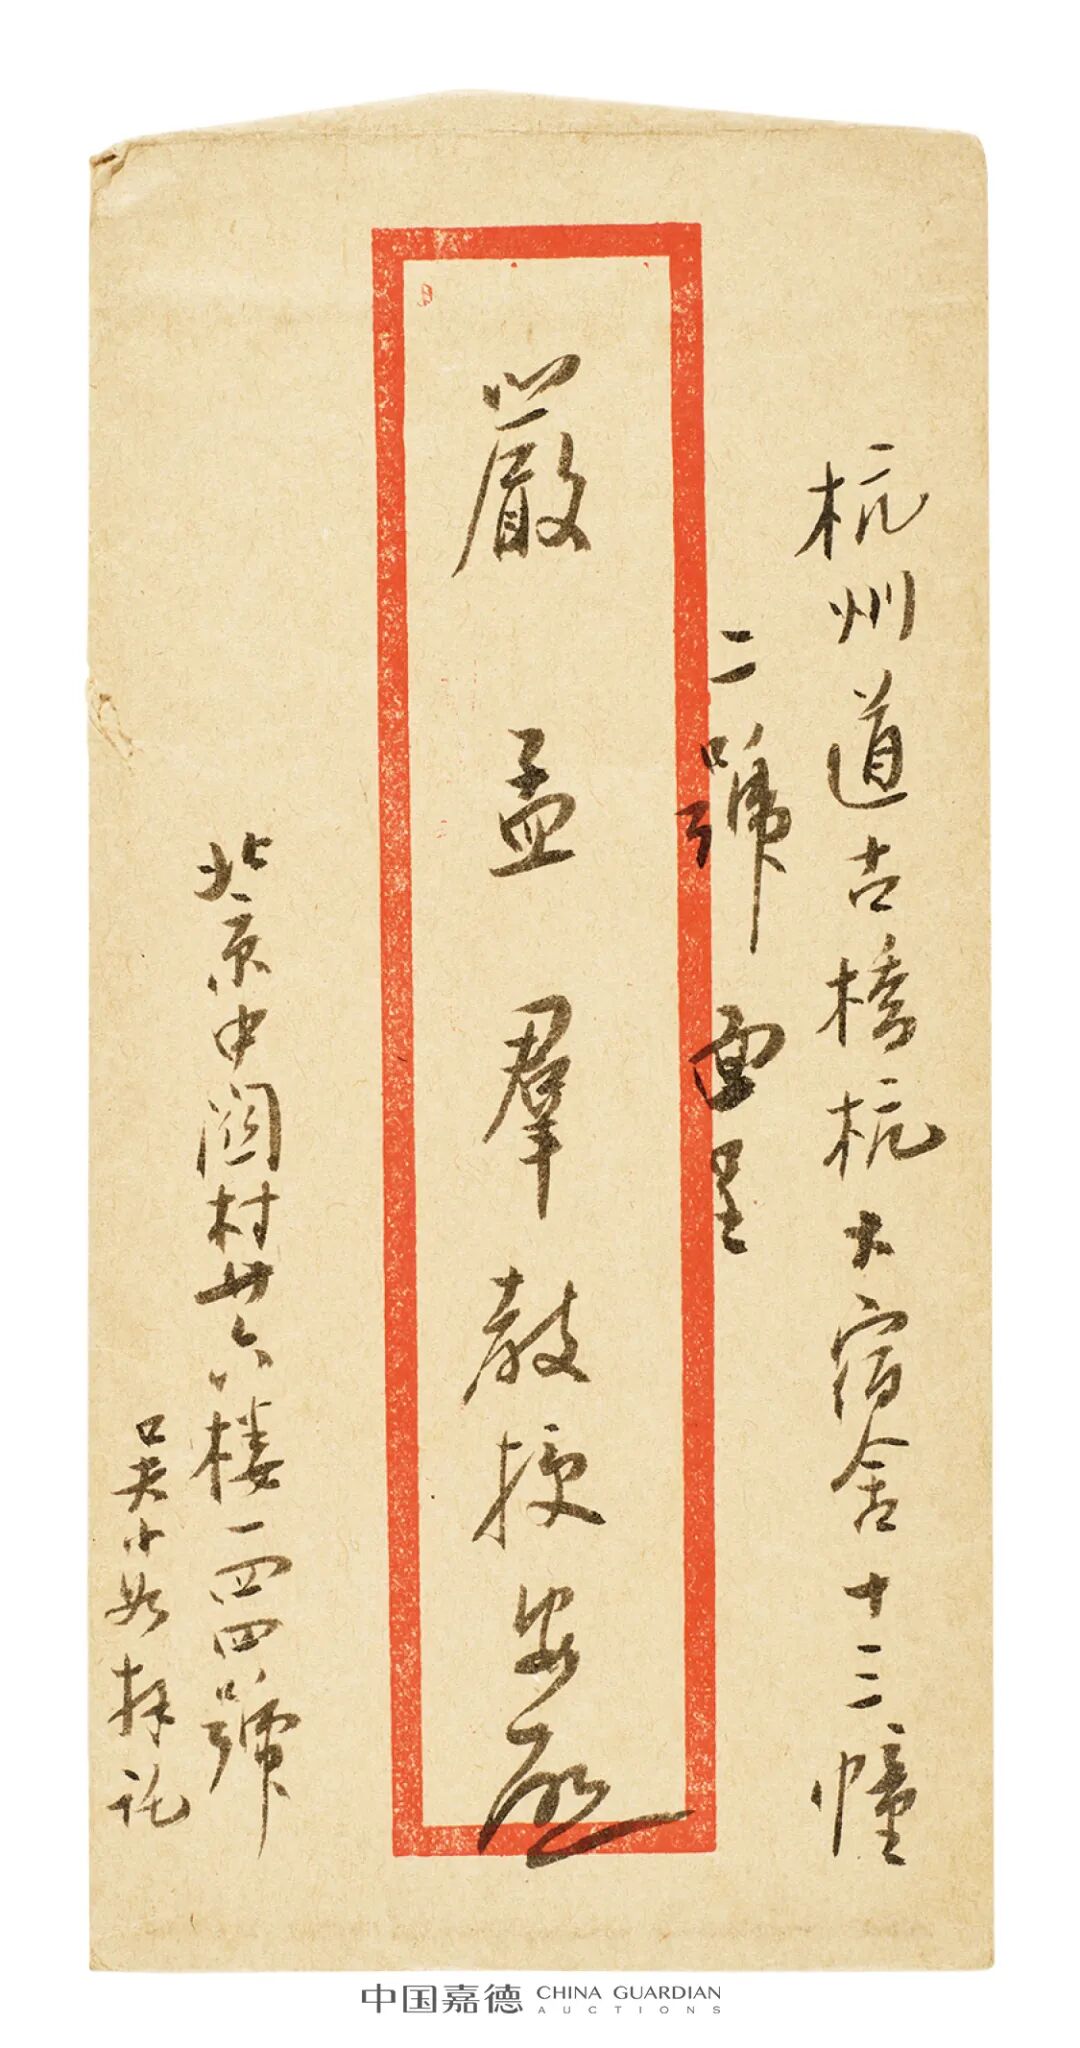 杭州道古橋杭大宿舍十三幢
二號 面呈
嚴孟羣教授安啟
北京中關村廿六楼一四四號
吴小如拜託
中国嘉德 CHINA GUARDIAN
AUCTIONS